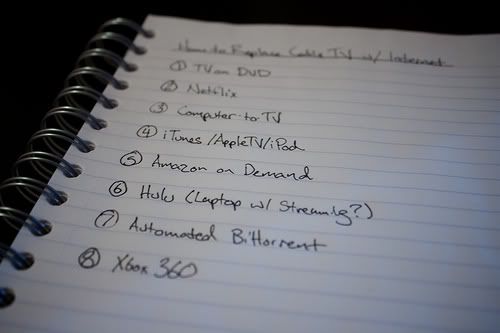 How to Replace Cable TV w/ Internet
① TV on DVD
② Netflix
③ Computer-to-TV
④ iTunes/AppleTV/iPod
⑤ Amazon on Demand
⑥ Hulu (Laptop w/ Streaming?)
⑦ Automated BitTorrent
⑧ Xbox 360